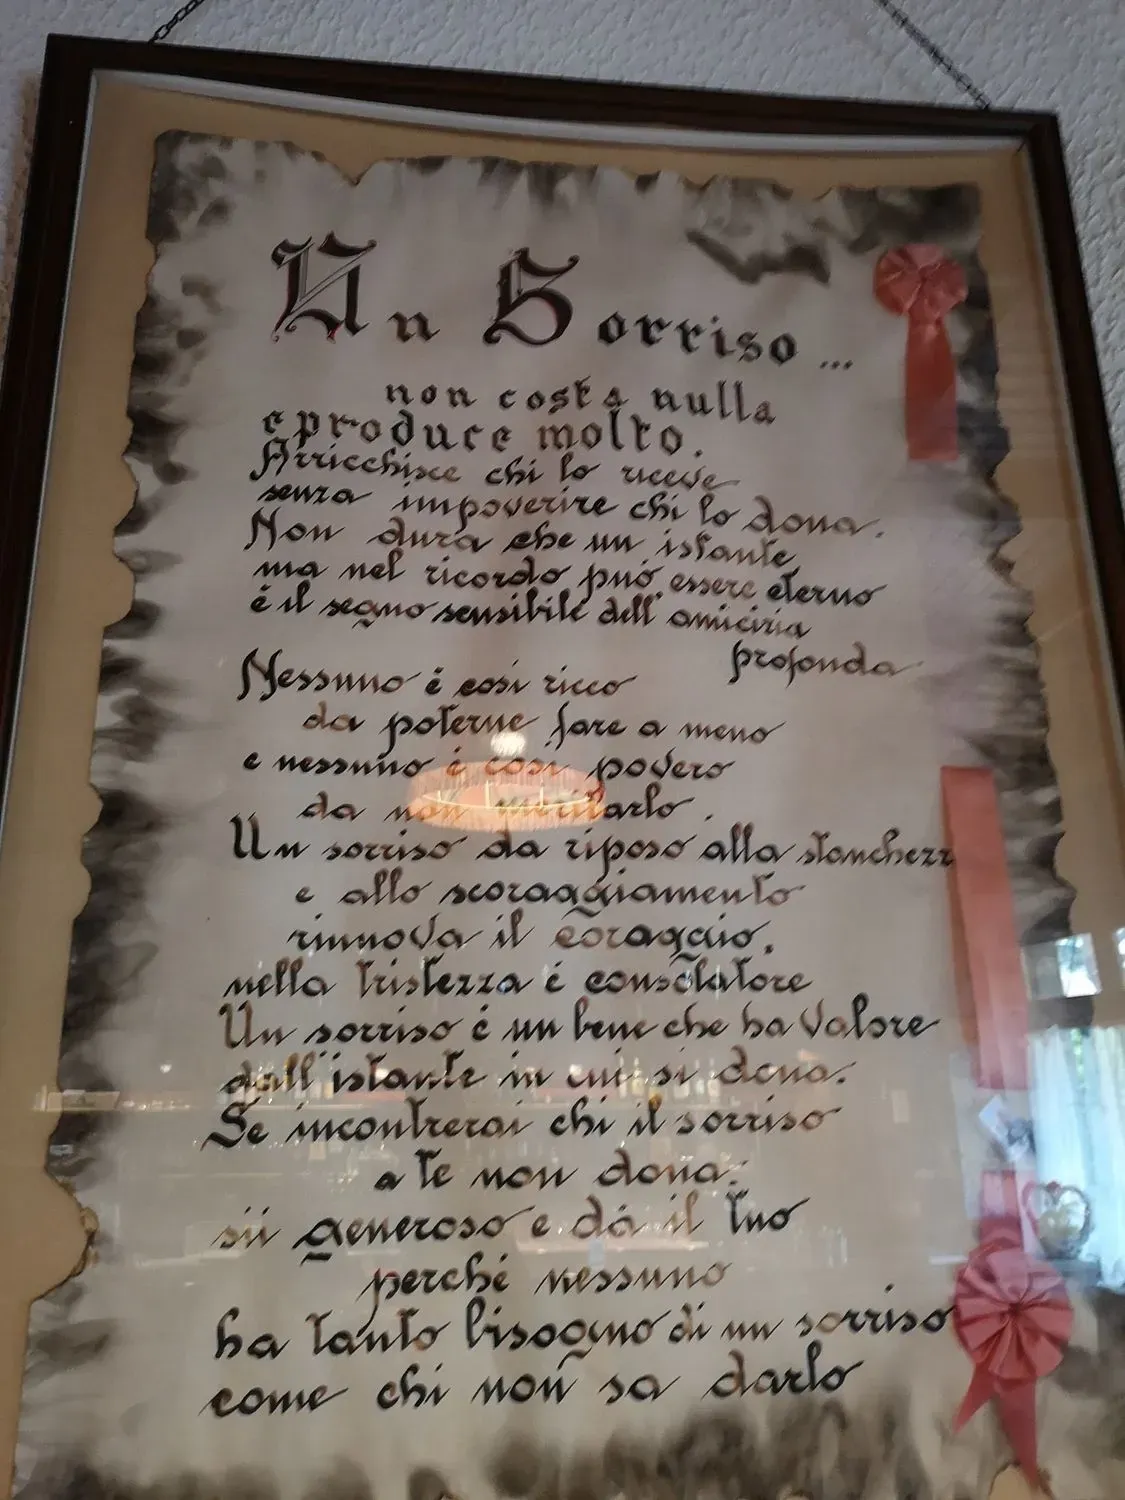 Un Sorriso...
non costa nulla
e produce molto.
Arricchisce chi lo riceve
senza impoverire chi lo dona.
Non dura che un istante
ma nel ricordo può essere eterno
è il segno sensibile dell'amicizia
profonda
Nessuno è così ricco
da poterne fare a meno
e nessuno è così povero
da non meritarlo.
Un sorriso da riposo alla stanchezz
e allo scoraggiamento
rinnova il coraggio,
nella tristezza è consolatore
Un sorriso è un bene che ha valore
dall'istante in cui si dona.
Se incontrerai chi il sorriso
a te non dona:
sii generoso e dà il tuo
perché nessuno
ha tanto bisogno di un sorriso
come chi non sa darlo